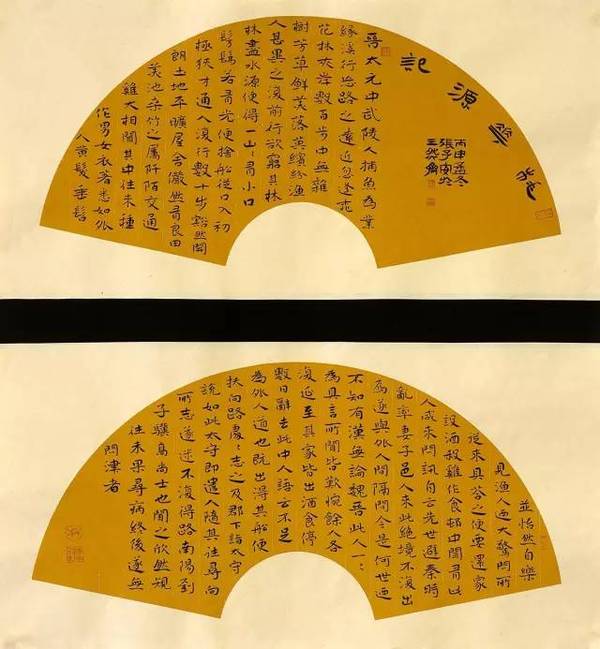 桃華源記
丙申孟冬
三然齋
晉太元中武陵人捕魚為業
緣溪行忘路之遠近忽逢桃
花林夾岸數百步中無雜
樹芳草鮮美落英繽紛漁
人甚異之復前行欲窮其林
林盡水源便得一山:有小口
髣髴若有光便捨船從口入初
極狹才通人復行數十步豁然開
朗土地平曠屋舍儼然有良田
美池桑竹之屬阡陌交通
雞犬相聞其中往來種
作男女衣著悉如外
人黃髮垂髫
並怡然自樂
見漁人迺大驚問所
從來具答之便要還家
設酒殺雞作食邨中聞有此
人咸來問訊自云先世避秦時
亂率妻子邑人來此絕境不復出
焉遂與外人間隔問今是何世迺
不知有漢無論魏晉此人一:
為具言所聞皆歎惋餘人各
復延至其家皆出酒食停
數日辭去此中人語云不足
為外人道也既出得其船便
扶向路處:志之及郡下詣太守
說如此太守即遣人隨其往尋向
所志遂迷不復得路南陽劉
子驥高尚士也聞之欣然規
往未果尋病終後遂無
問津者